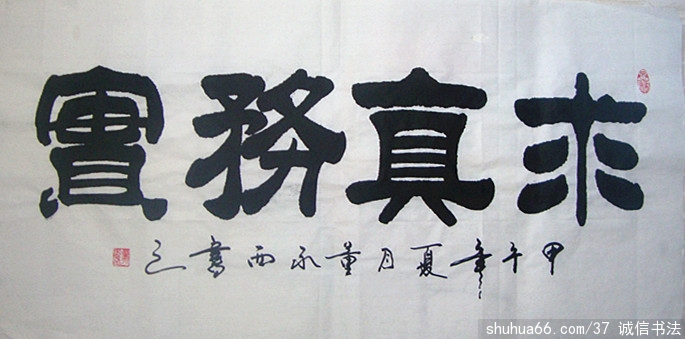 求真務實
甲午年夏月董永西書之
shuhua66.com/37 诚信书法